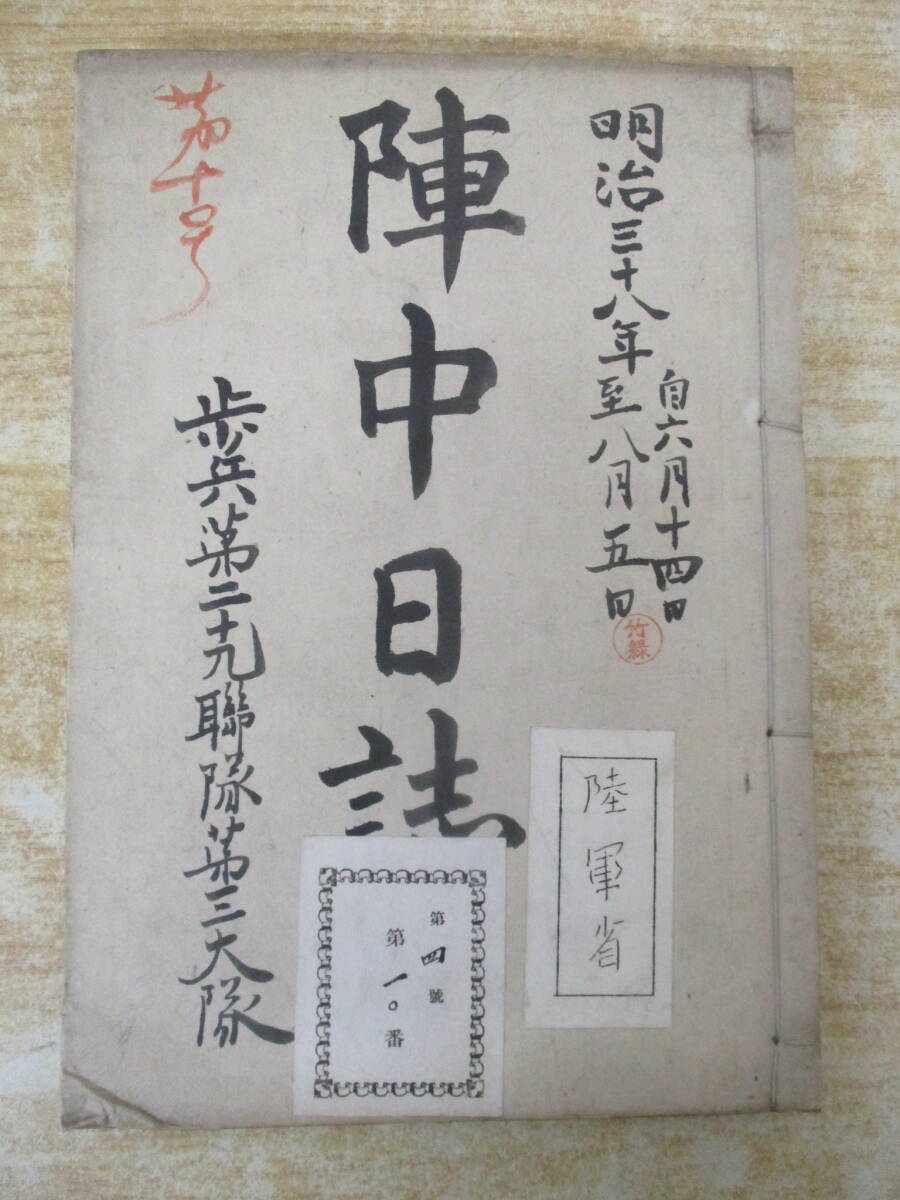 明治三十八年
自六月十四日
至八月五日
竹緑
陣中日誌
第十号
歩兵第二十九聯隊第三大隊
陸軍省
第四號
第一〇番